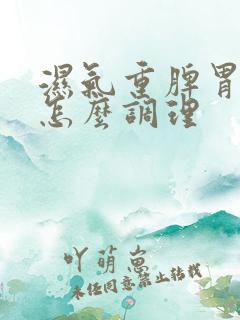 濕氣重脾胃
怎麼調理
吖萌蔥
未經同意禁止轉載